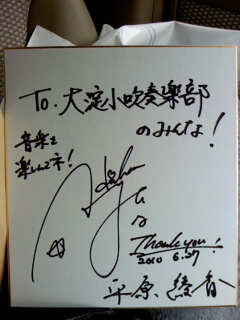 To. 大淀小吹奏楽部
のみんな!
音楽を
楽しんでネ!
Thank you!
2010 6.27
平原 綾香